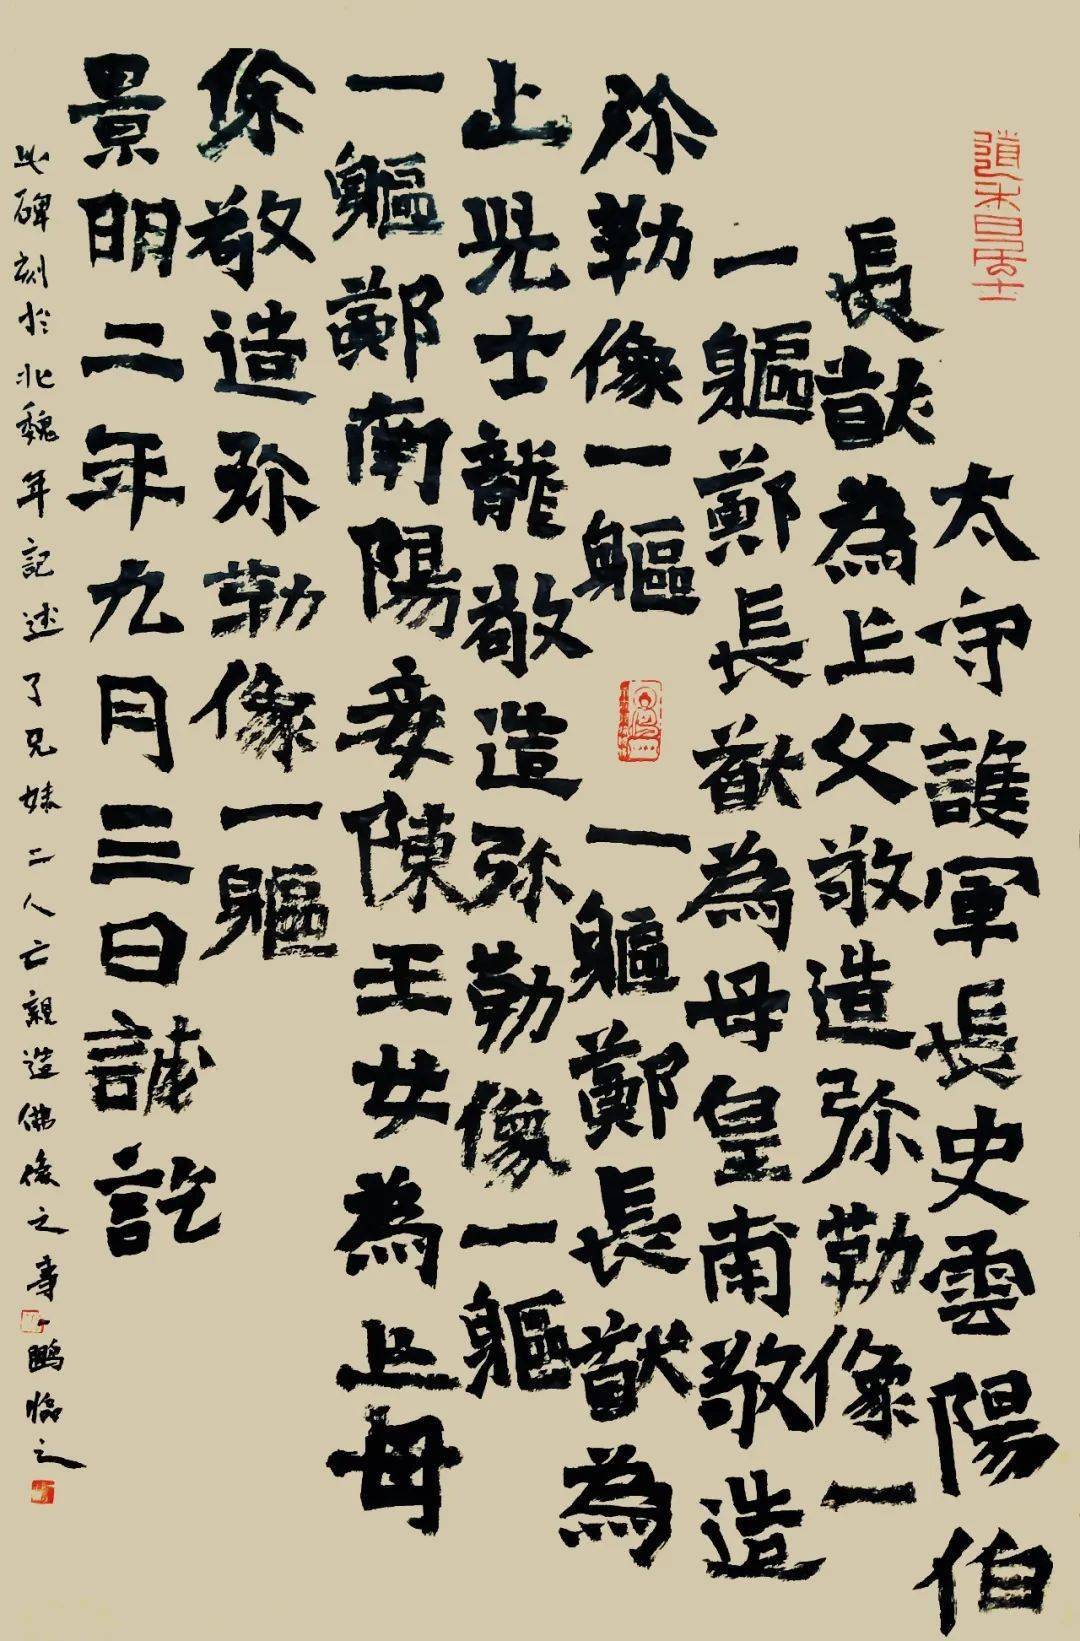 太守護軍長史雲陽伯
長猷為亡父敬造弥勒像一
一軀鄭長猷為母皇甫敬造
弥勒像一軀 一軀鄭長猷為
亡兒士龍敬造弥勒像一軀
一軀鄭南陽妾陳王女為亡母
徐敬造弥勒像一軀
景明二年九月三日誠訖
此碑刻於北魏年記述了兄妹二人亡親造佛像之事一鵬臨之